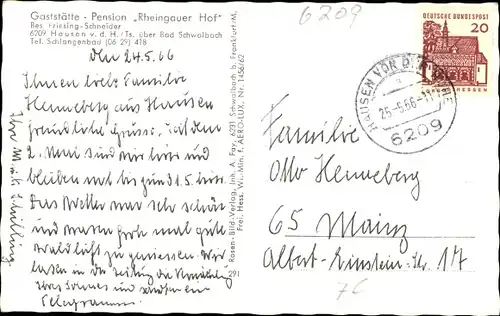 Gaststätte - Pension „Rheingauer Hof"
Bes. Krinsing-Schneider
6209 Hausen v. d. H./Ts. über Bad Schwalbach
Tel. Schlangenbad (06 29) 418
6209
DEUTSCHE BUNDESPOST
20
HESSEN
HAUSEN VON DER
25.-5.66-11
6209
den 24.5.66
Ihnen liebe Familie
Henneberg aus Hausen
freundliche Grüsse. Seit dem
2. Mai sind wir hier und
bleiben noch bis zum 1.5. hier.
Das Wetter war sehr schön
und waren froh mal gute
Waldluft zu geniessen. Wir
lasen in der Zeitung die
Ihres Sohnes und
Telegramm.
Ihre
Rosen-Bild-Verlag, Inh. A. Fay, 6231 Schwalbach b. Frankfurt/M.
Frei. Hess. Wi.-Min. f. AERO-LUX, Nr. 1456/62
291
Familie
Otto Henneberg
65 Mainz
Albert-Einstein-Str. 17
7C